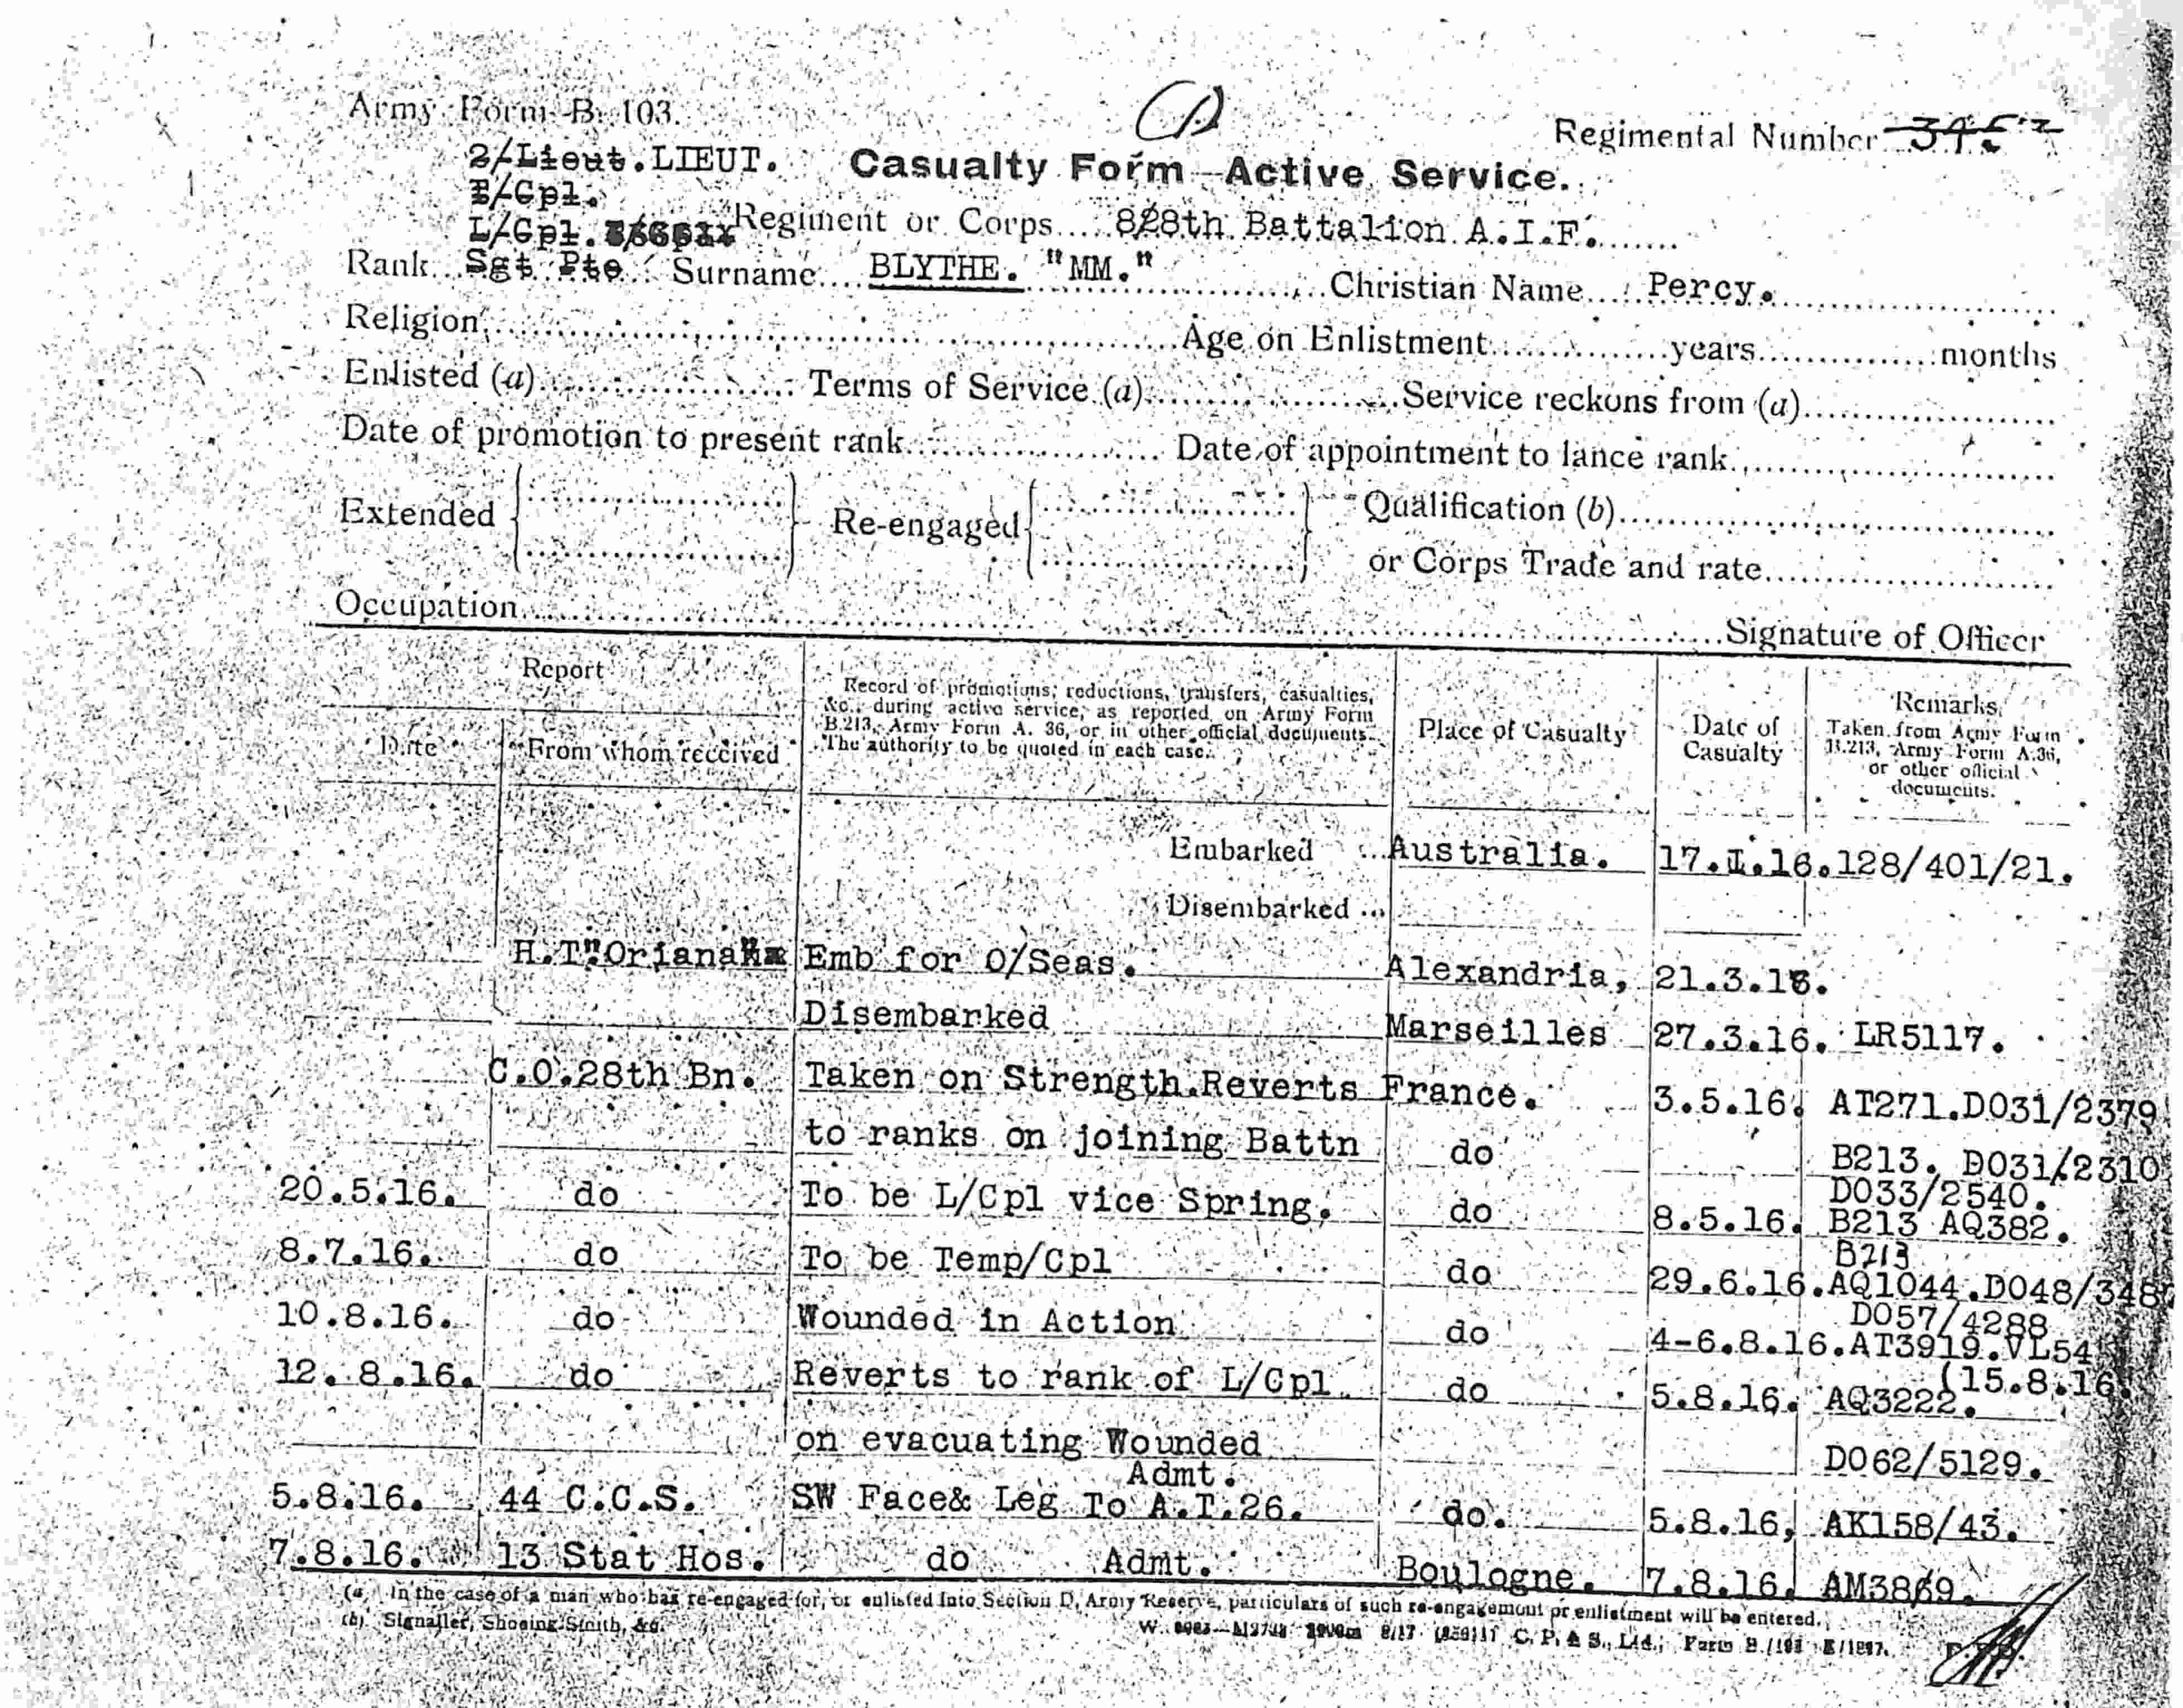 Army Form B. 103.
(1)
Regimental Number
2/Lieut. LIEUT. Casualty Form—Active Service.
L/Cpl. Regiment or Corps.... 28th Battalion A.I.F.
Rank Sgt Pte Surname BLYTHE. "MM." Christian Name Percy.
Religion Age on Enlistment years months
Enlisted (a) Terms of Service (a) Service reckons from (a)
Date of promotion to present rank Date of appointment to lance rank
Extended Re-engaged Qualification (b)
or Corps Trade and rate
Occupation Signature of Officer
Report
Date From whom received
Record of promotions, reductions, transfers, casualties,
&c., during active service, as reported on Army Form
B.213, Army Form A. 36, or in other official documents.
The authority to be quoted in each case.
Place of Casualty
Date of
Casualty
Remarks
Taken from Army Form
B.213, Army Form A.36,
or other official
documents.
Embarked ... Australia. 17.1.16. 128/401/21.
Disembarked ...
H.T."Oriana" Emb for O/Seas. Alexandria, 21.3.16.
Disembarked Marseilles 27.3.16. LR5117.
C.O.28th Bn. Taken on Strength.Reverts France. 3.5.16. AT271.D031/2379
to ranks on joining Battn do B213. D031/2310
D033/2540.
20.5.16. do To be L/Cpl vice Spring. do 8.5.16. B213 AQ382.
B213
8.7.16. do To be Temp/Cpl do 29.6.16. AQ1044.D048/348
D057/4288
10.8.16. do Wounded in Action do 4-6.8.16. AT3919.VL54
(15.8.16.
12.8.16. do Reverts to rank of L/Cpl do 5.8.16. AQ3222.
on evacuating Wounded D062/5129.
Admt.
5.8.16. 44 C.C.S. SW Face& Leg To A.T.26. do. 5.8.16, AK158/43.
7.8.16. 13 Stat Hos. do Admt. Boulogne. 7.8.16. AM3869.
(a) In the case of a man who has re-engaged for, or enlisted into Section D, Army Reserve, particulars of such re-engagement or enlistment will be entered.
(b) Signaller, Shoeing Smith, &c.
8/17 C. P. & S., Ltd.,